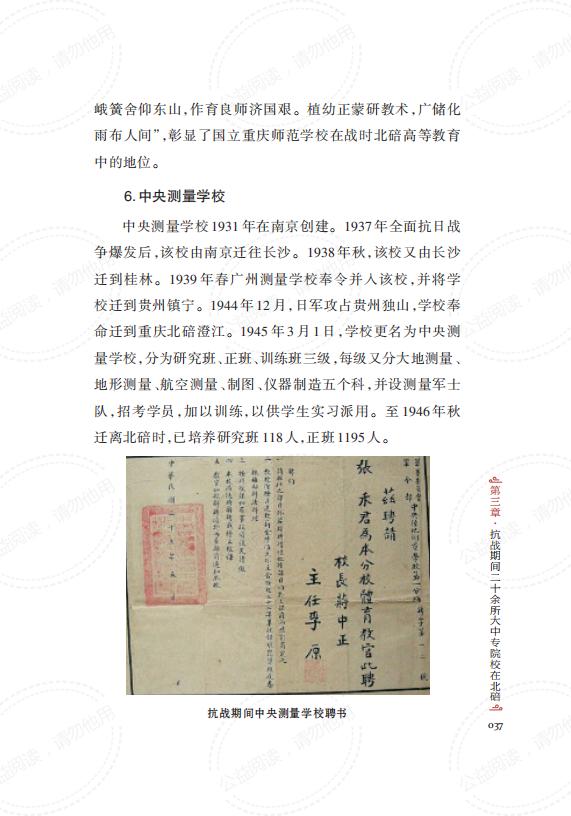 峨黉舍仰东山，作育良师济国艰。植幼正蒙研教术，广储化
雨布人间”，彰显了国立重庆师范学校在战时北碚高等教育
中的地位。
6. 中央测量学校
中央测量学校1931年在南京创建。1937年全面抗日战
争爆发后，该校由南京迁往长沙。1938年秋，该校又由长沙
迁到桂林。1939年春广州测量学校奉令并入该校，并将学
校迁到贵州镇宁。1944年12月，日军攻占贵州独山，学校奉
命迁到重庆北碚澄江。1945年3月1日，学校更名为中央测
量学校，分为研究班、正班、训练班三级，每级又分大地测量、
地形测量、航空测量、制图、仪器制造五个科，并设测量军士
队，招考学员，加以训练，以供学生实习派用。至1946年秋
迁离北碚时，已培养研究班118人，正班1195人。
茲聘請
張 禾君為本分校體育教官此聘
校長蔣中正
主任李 原
抗战期间中央测量学校聘书
第三章·抗战期间二十余所大中专院校在北碚
037
公益阅读，请勿他用